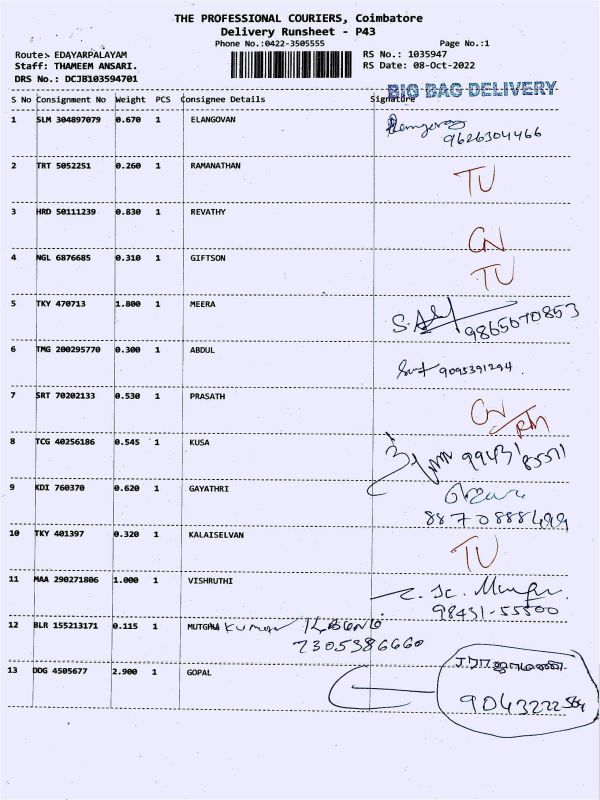 THE PROFESSIONAL COURIERS, Coimbatore
Delivery Runsheet - P43
Phone No.:0422-3505555 Page No.:1
Route:- EDAYARPALAYAM RS No.: 1035947
Staff: THAMEEM ANSARI. RS Date: 08-Oct-2022
DRS No.: DCJB103594701
BIG BAG DELIVERY
S No Consignment No Weight PCS Consignee Details Signature
1 SLM 304897079 0.670 1 ELANGOVAN
9626304466
2 TRT 5052251 0.260 1 RAMANATHAN TU
3 HRD 50111239 0.830 1 REVATHY CN
4 NGL 6876685 0.310 1 GIFTSON TU
5 TKY 470713 1.800 1 MEERA 9865070853
6 TMG 200295770 0.300 1 ABDUL 9095391294
7 SRT 70202133 0.530 1 PRASATH CN
8 TCG 40256186 0.545 1 KUSA
9 KDI 760370 0.620 1 GAYATHRI
8870888499
10 TKY 401397 0.320 1 KALAISELVAN TU
11 MAA 290271806 1.000 1 VISHRUTHI
98431-55500
12 BLR 155213171 0.115 1 Kumar
7305386660
13 DDG 4505677 2.900 1 GOPAL